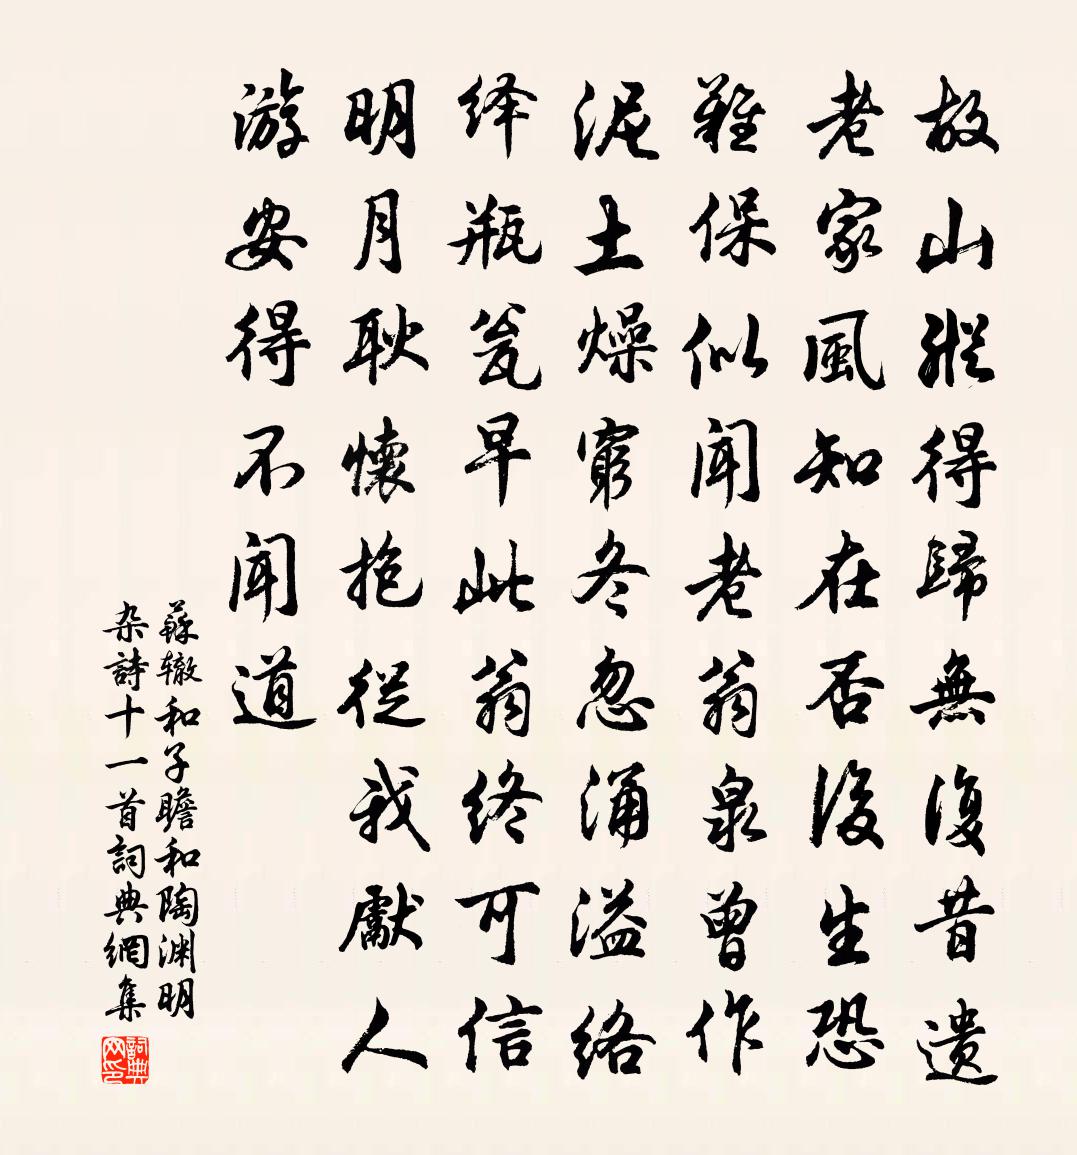 故山縱得歸無復昔遗
老家風知在否後生恐
難保似聞老翁泉曾作
泥土燥窮冬忽涌溢絡
绎瓶瓮早此翁終可信
明月耿懷抱從我獻人
游安得不聞道
蘇辙和子瞻和陶渊明
杂詩十一首詞典網集
詞典网印